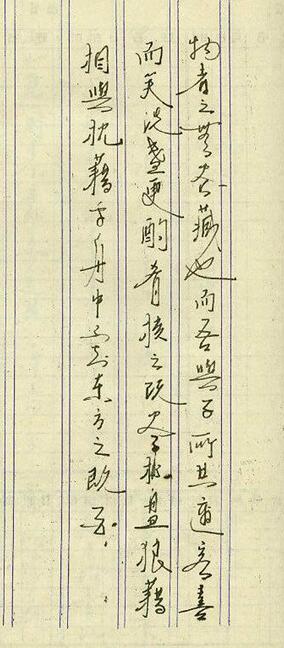 物者之無尽藏也而吾與子所共適客喜
而笑洗盞更酌肴核之既尽杯盘狼藉
相與枕藉乎舟中不知東方之既白